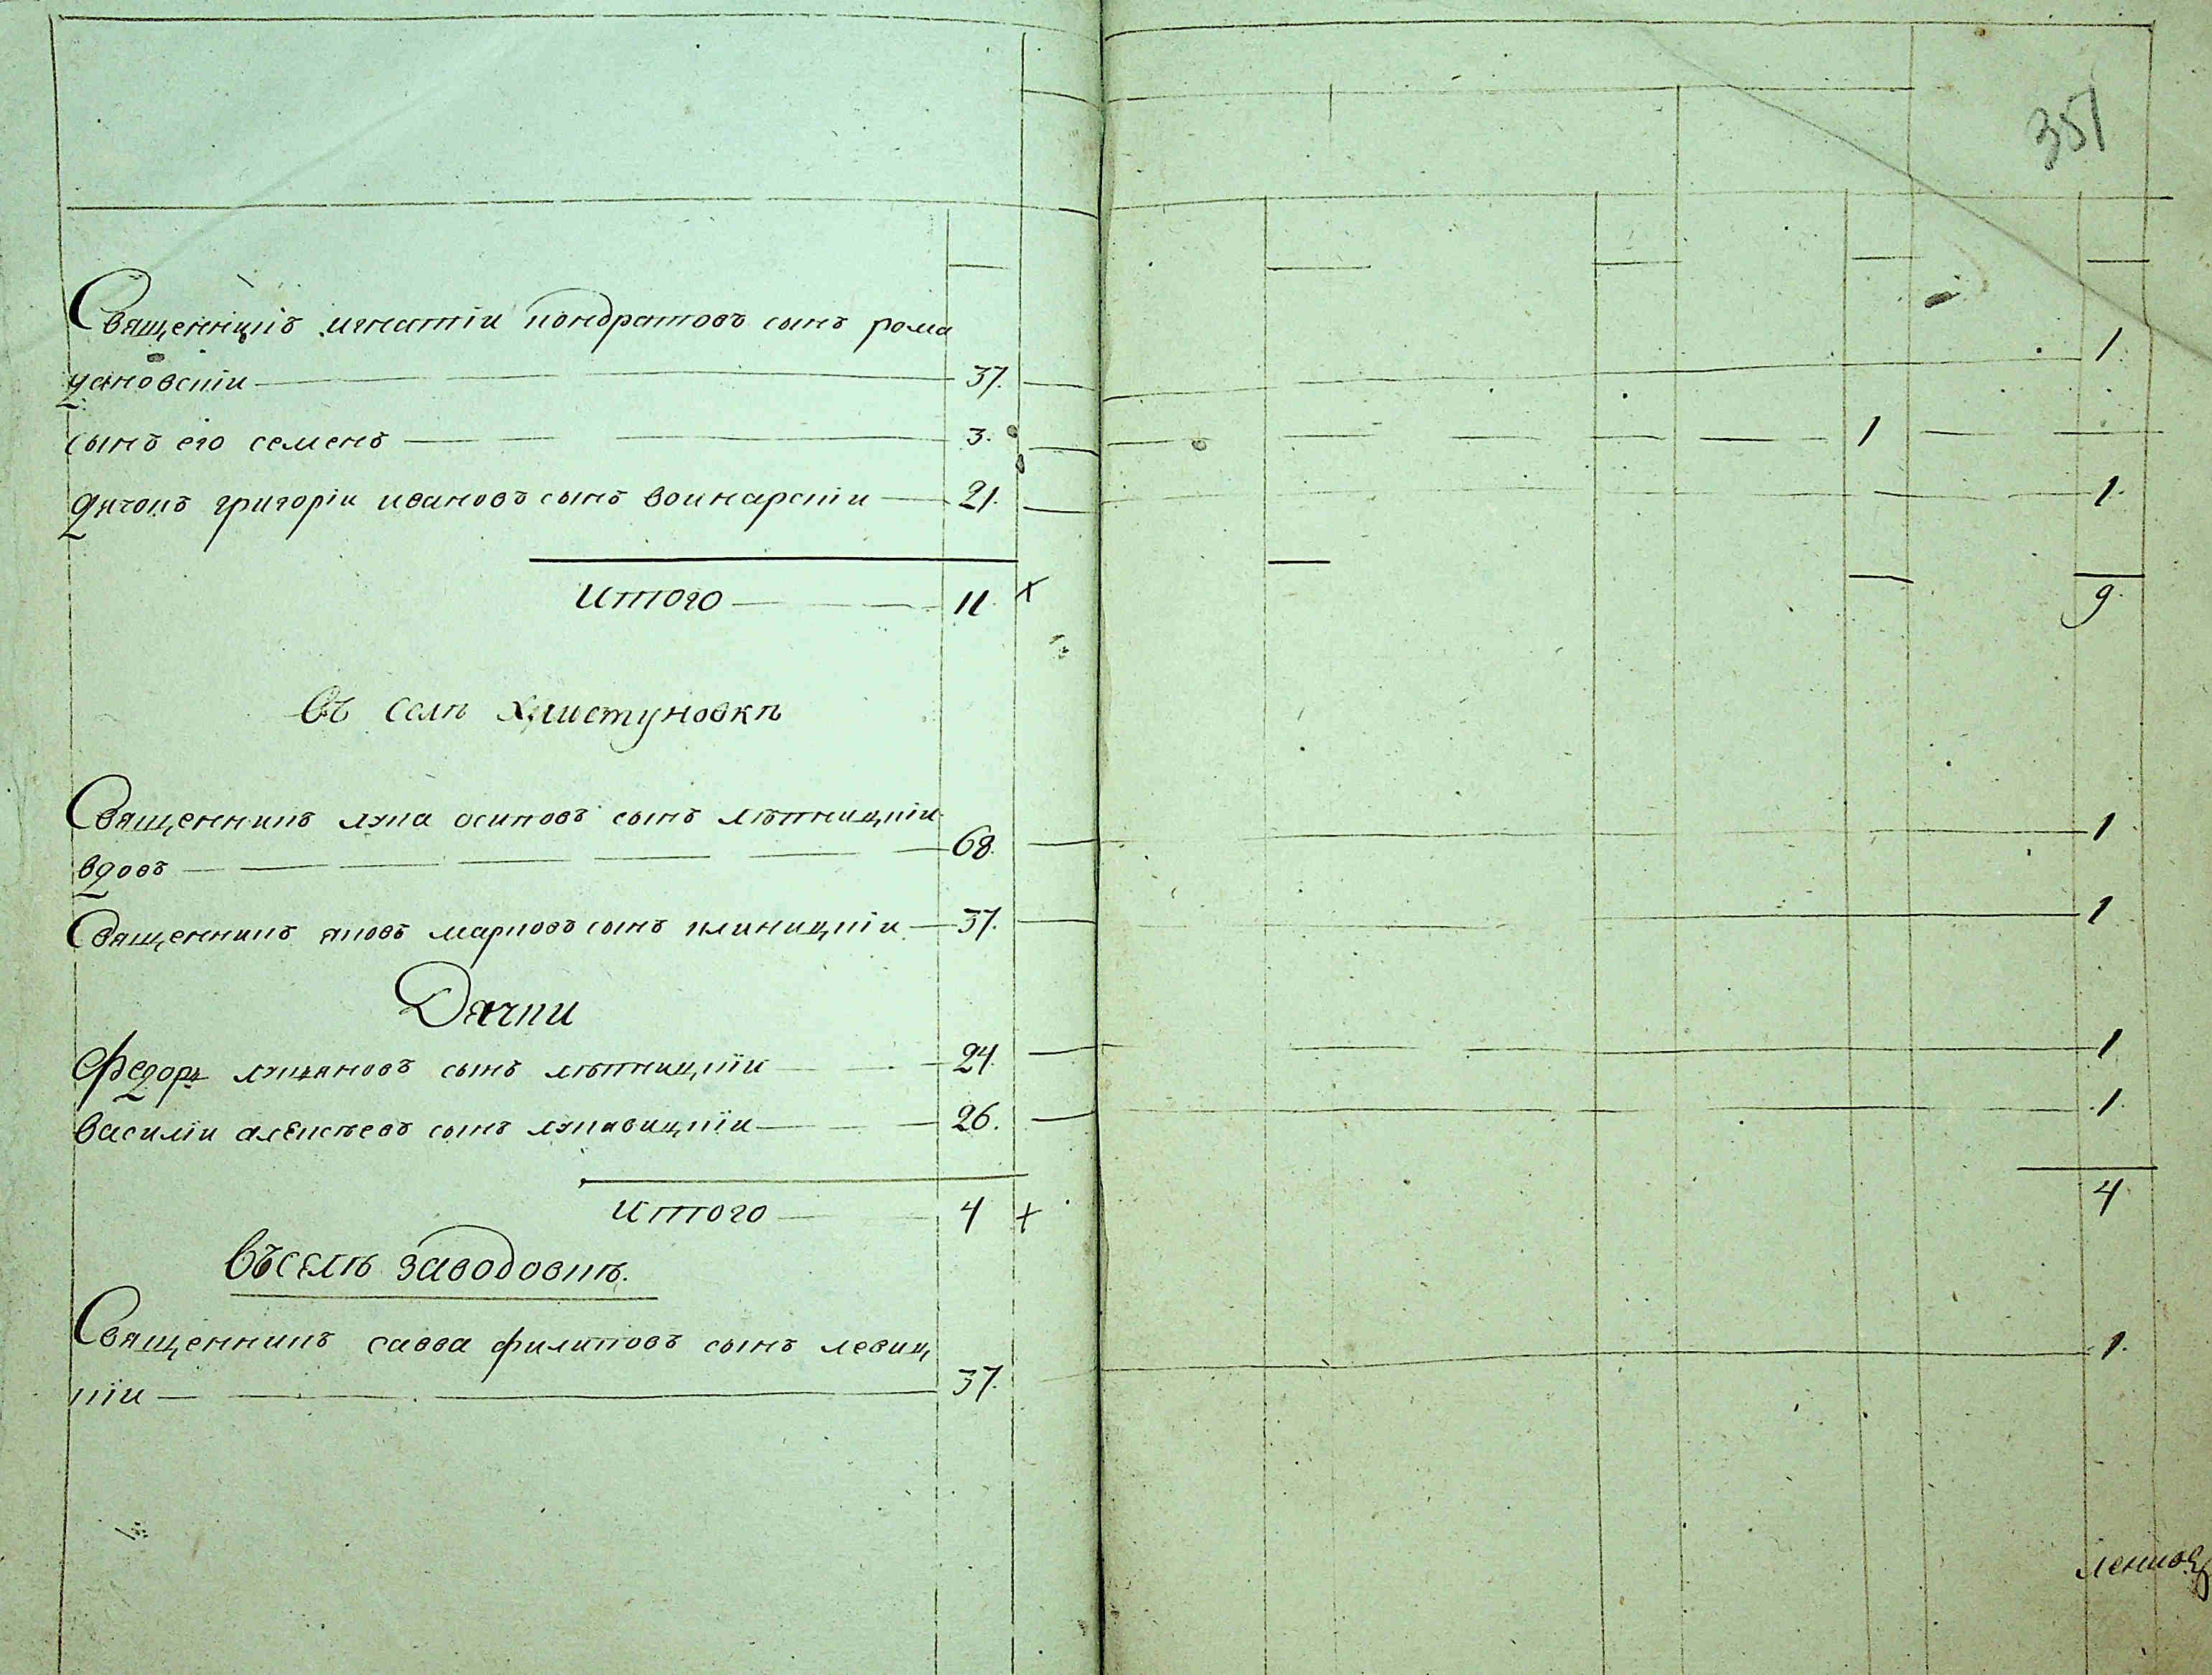 351
Священникъ игнатіи кондратовъ сынъ рома
цановскіи 37. 1.
сынъ его семенъ 3. 1
дячокъ григоріи ивановъ сынъ воинарскіи 21. 1.
Итого 11. х 9.
въ селѣ Христуновкѣ
Священникъ лука осиповъ сынъ лѣтницкіи
вдовъ 68. 1
Священникъ яковъ марковъ сынъ клиницкіи 37. 1
Дячки
Федоръ лукяновъ сынъ лѣтницкіи 24. 1
василіи алексѣевъ сынъ лукавицкіи 26. 1.
итого 4 х 4
въ селѣ заводовкѣ.
Священникъ савва филиповъ сынъ левиц
кіи 37. 1.